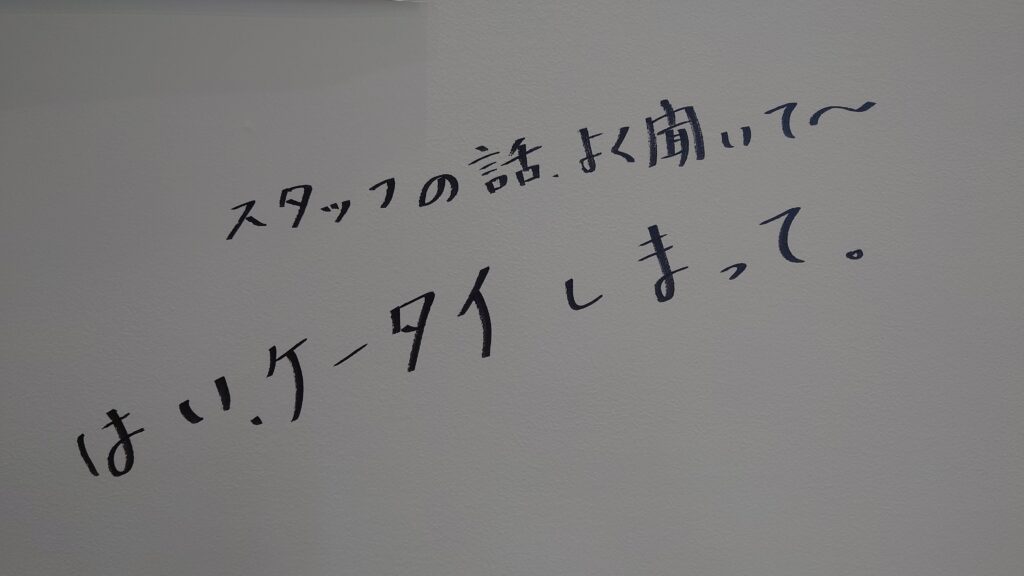 スタッフの話、よく聞いて〜
はい、ケータイしまって。